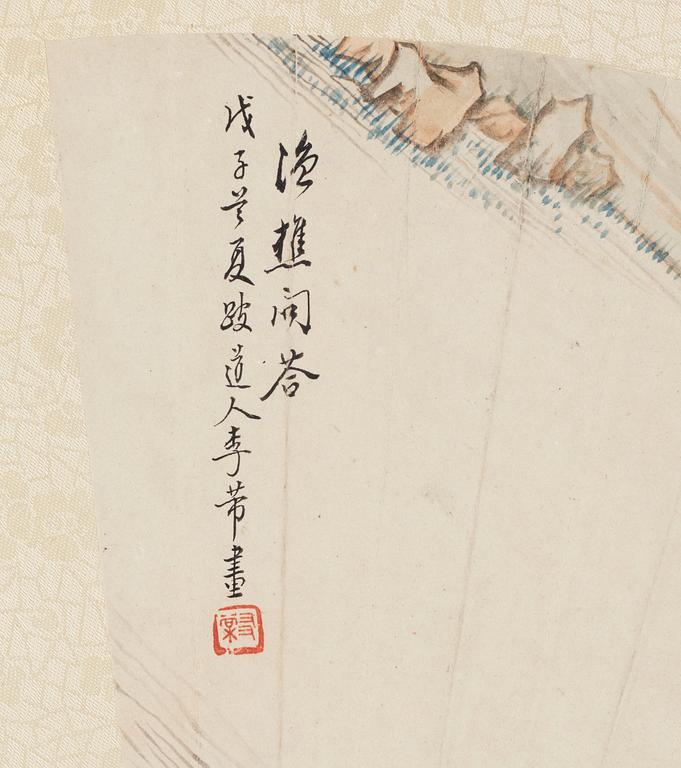 漁樵問答
戊子首夏跛道人李芾畫